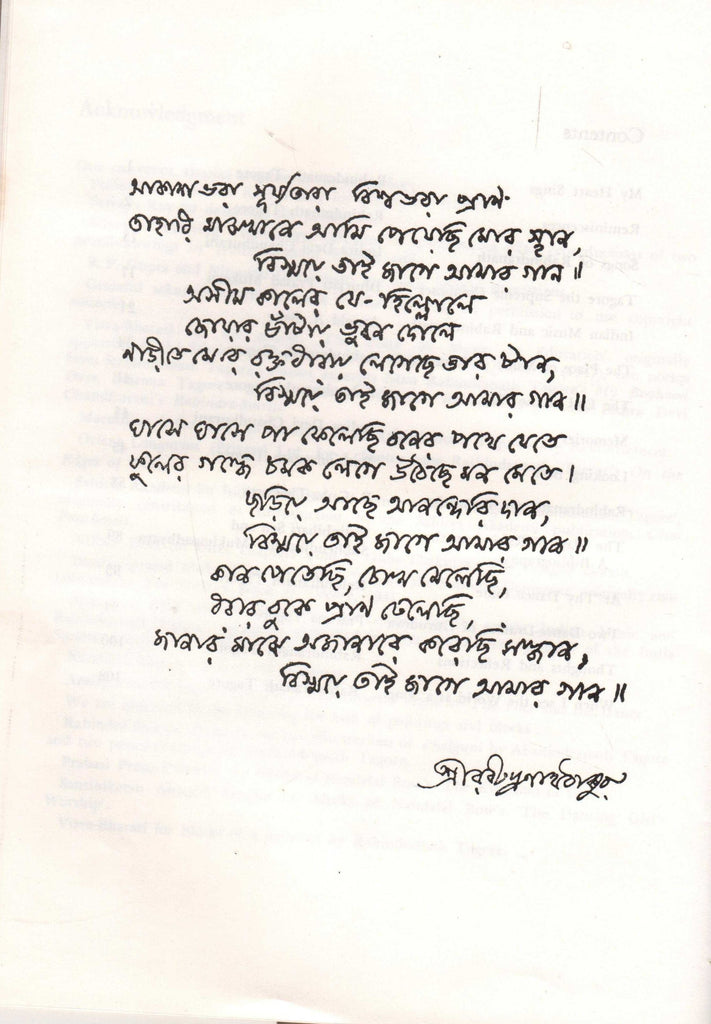 আকাশভরা সূর্য্যতারা বিশ্বভরা প্রাণ
তাহারি মাঝখানে আমি পেয়েছি মোর স্থান,
বিস্ময়ে তাই জাগে আমার গান॥
অসীম কালের যে-হিল্লোলে
জোয়ার ভাঁটায় ভুবন দোলে
নাড়ীতে মোর রক্তধারায় লেগেছে তার টান,
বিস্ময়ে তাই জাগে আমার গান॥
ঘাসে ঘাসে পা ফেলেছি বনের পথে যেতে
ফুলের গন্ধে চমক লেগে উঠেছে মন মেতে।
ছড়িয়ে আছে আনন্দেরি দান,
বিস্ময়ে তাই জাগে আমার গান॥
কান পেতেছি, চোখ মেলেছি,
ধরার বুকে প্রাণ ঢেলেছি,
জানার মাঝে অজানারে করেছি সন্ধান,
বিস্ময়ে তাই জাগে আমার গান॥
শ্রীরবীন্দ্রনাথ ঠাকুর